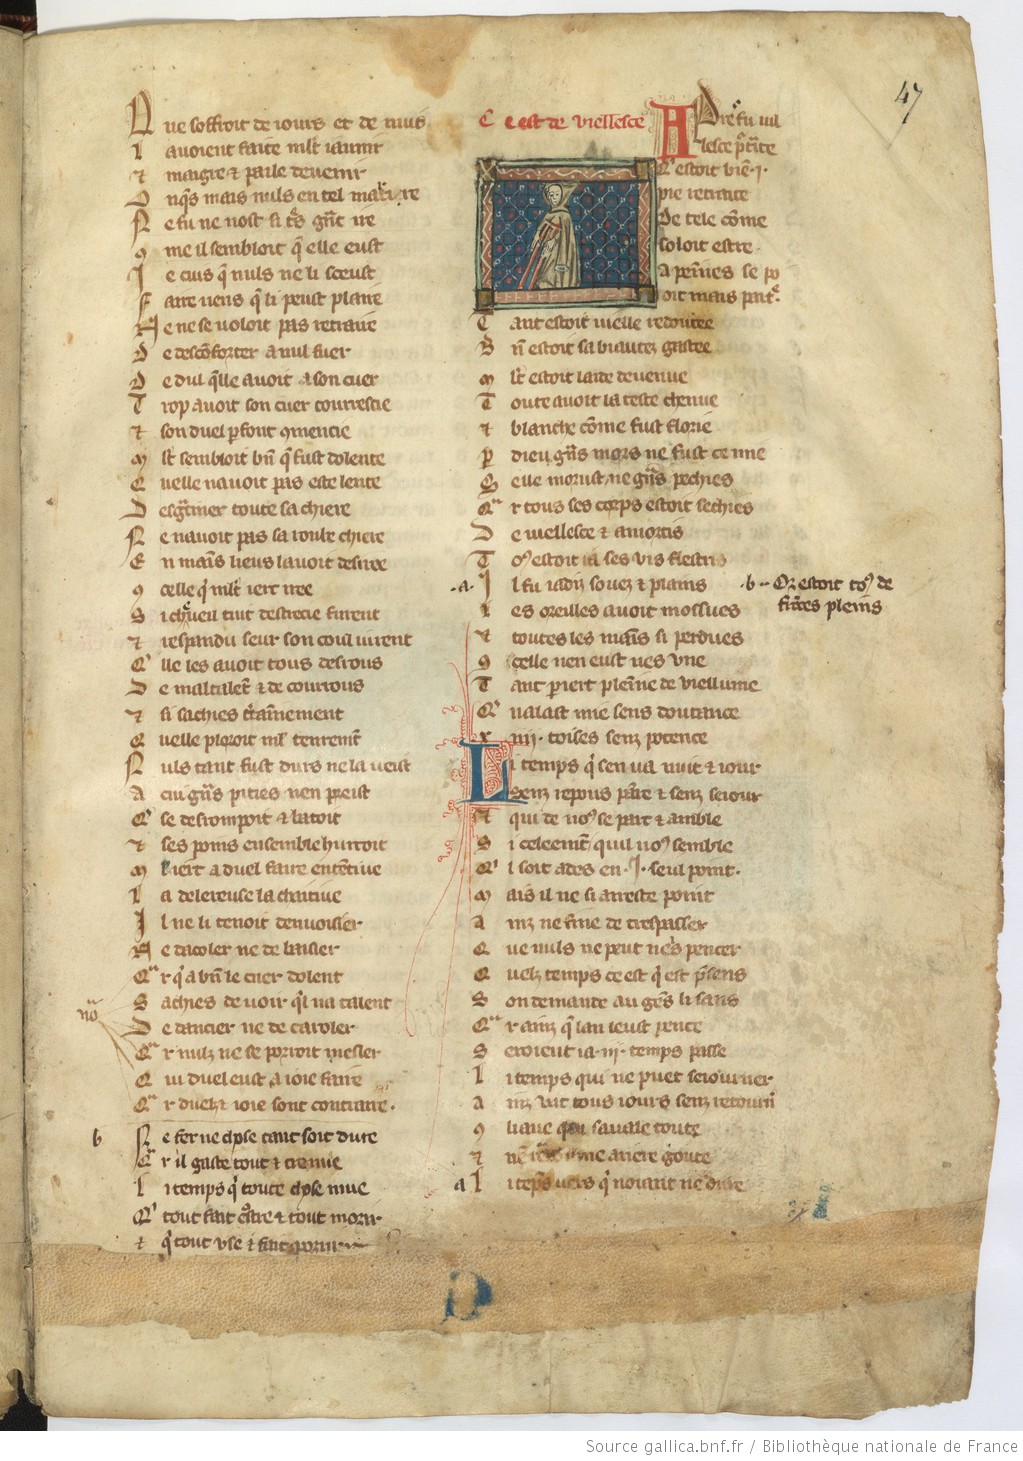 47
Que soffroit de iours et de nuis
l avoient faite mlt iaunir
et maigre et pale devenir
e fu ne nost si tͤs gͣnt ire
9me il sembloit q̄ elle eust
Je cuis q̄ nuls ne li sceust
Faire riens q̄ li peust plaire
Ne ne se voloit pas retraire
de descōforter a nul fuer
de dul q̄lle avoit a son cuer
Trop avoit son cuer courrescie
et son duel pfont 9mencie
mlt sembloit bn̄ q̄ fust dolente
Quelle navoit pas este lente
Desgͣtiner toute sa chiere
Ne navoit pas sa robe chiere
En mains lieus lavoit desiree
9 celle q̄ mlt iert iree
Si chͤveil tuit destrecie furent
et respandu seur son coul iurent
Elle les avoit tous desrous
De maltalēt et de courrous
et si sachies c̄tainnement
Quelle ploroit mlt tenremt̄
Nuls tant fust durs ne la veist
A cui gͣns pities nen preist
Se desrompoit et batoit
et ses poins ensemble hurtoit
mlt iert a duel faire ententive
La dolereuse la chaitive
Il ne li tenoit denvoisier
Ne dacoler ne de baisier
Qͣr q̄ a bn̄ le cuer dolent
Sachies de voir q̄l na talent
De dancier ne de caroler
Qͣr nulz ne se porroit mesler
Qui duel eust a ioie faire
Qͣr duelz et ioie sont contraire.
b Ne fer ne chose tant soit dure
Qͣr il gaste tout et mue
Li temps q̄ toute chose mue
Q' tout fait croistre et tout norir
et q̄ tout use et fait porrir
Cest de viellesce
Apres fu vil
lesce ptͥte
Q' estoit bien .i.
pie retraite
De tele cōme
soloit estre
a peinnes se po
oit mais paistͤ
Tant estoit vielle redoutee
Bn̄ estoit sa biautez gastee
mlt estoit laide devenue
Toute avoit la teste chenue
et blanche cōme fust florie
p dieu gͣns mors ne fust ce mie
Selle morust ne gͣns pechies
Qͣr tous ses corps estoit sechies
De viellesce et amortis
To9 estoit ia ses vis flestris
.a. Il fu iadis souez et plains .b. Or estoit to9 de
fronces pleins
Les oreilles avoit mossues
et toutes les dens si perdues
9celle nen eust nes une
Tant p iert pleinne de viellume
Q'nalast mie sens doutance
.iiii. toises senz potence
Li temps q̄ sen va nuit et iour
Senz repous pͣre et senz seiour
et qui de no9 se part et amble
Si celeemt̄ quil no9 semble
Q'l soit ades en .I. seul point.
mais il ne si arreste point
ainz ne fine de trespasser
Que nuls ne peut nes pencer
Quelz temps ce est q̄ est psens
Son demande au gͣns lisans
Qͣr ainz q̄ lan leust pence
Seroient ia .iii. temps passe
Li temps qui ne puet seiourner
ainz vait tous iours senz retourn̄
9 liaue q̄ savale toute
et nen retorne ariere goute
a Li tēps vers q̄ noiant ne dure